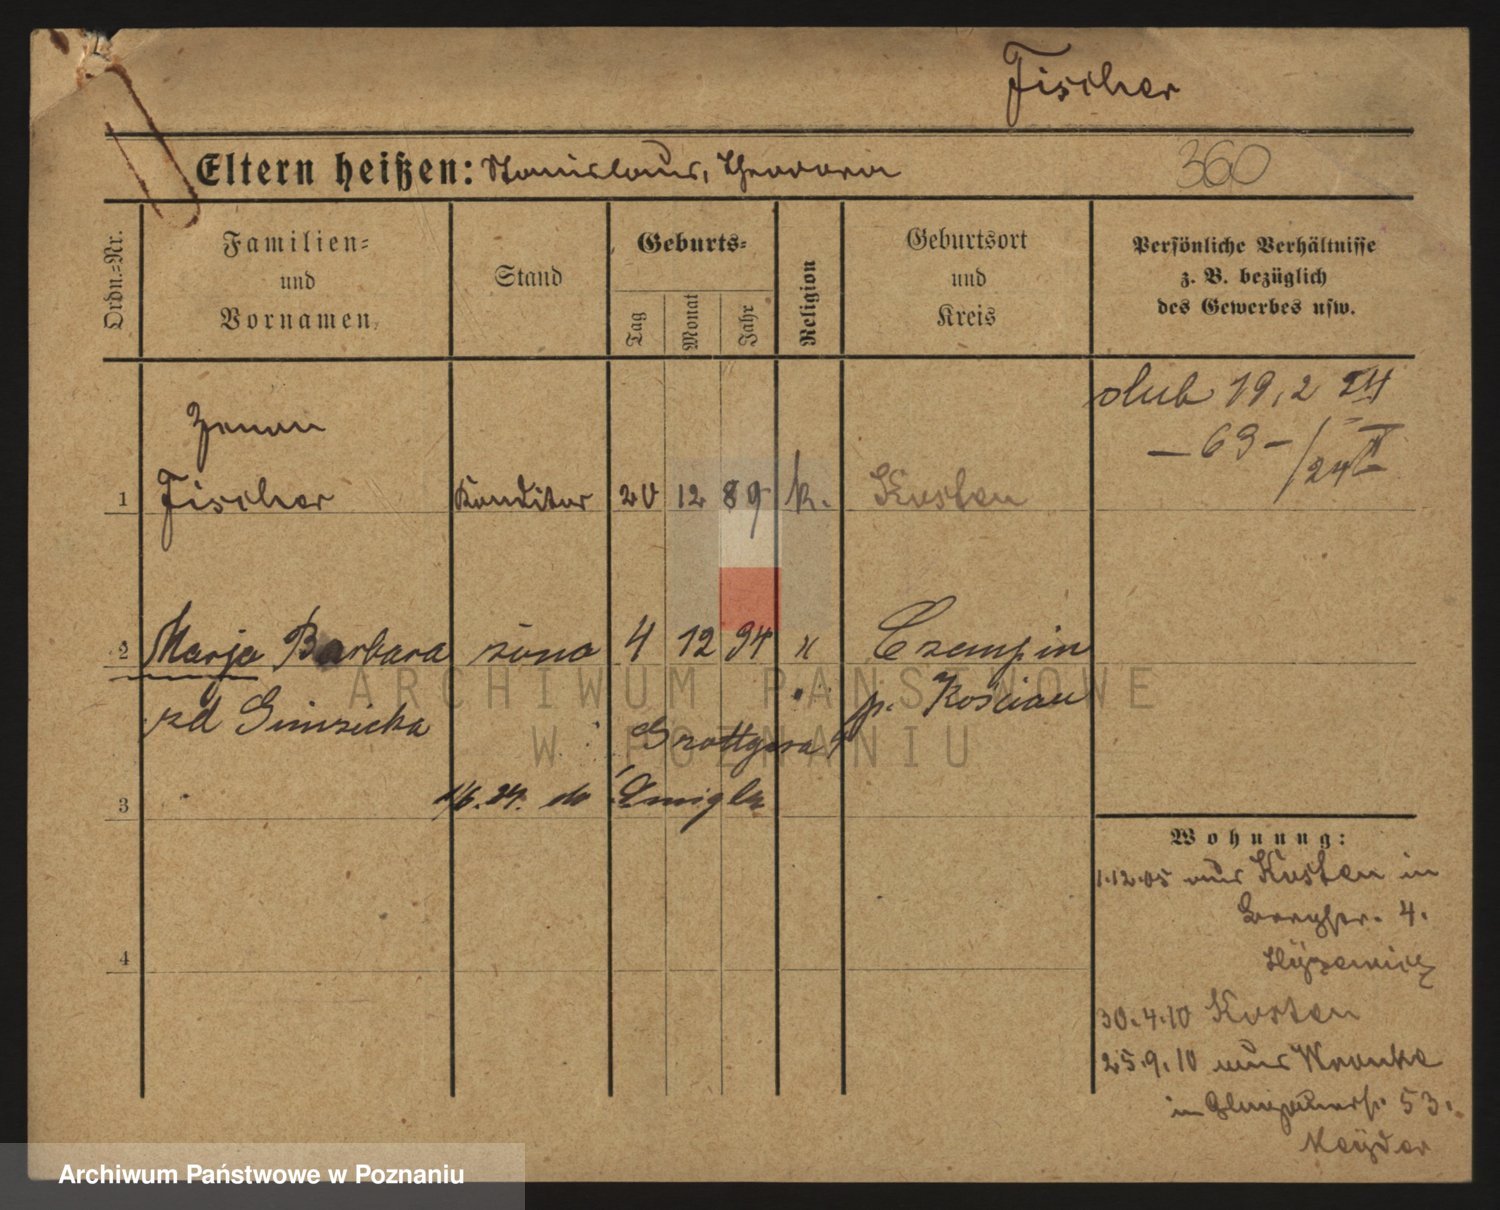 Fischer
Eltern heißen: Stanislaus, Theodora
360
Ordn.=Nr.
Familien=
und
Vornamen
Stand
Geburts=
Tag
Monat
Jahr
Religion
Geburtsort
und
Kreis
Persönliche Verhältnisse
z. B. bezüglich
des Gewerbes usw.
ślub 19.2 24
— 63 — / 24
Zenon
1 Fischer Konditor 20 12 89 k. Kosten
2 Marja Barbara żona 4 12 94 k Czempin
zd p. Kościan
Grottgera
3 do Śmigla
4
Wohnung:
1.12.05 aus Kosten in
4.
30.4.10 Kosten
25.9.10 aus Wronke
in 53.
ARCHIWUM PAŃSTWOWE
W POZNANIU
Archiwum Państwowe w Poznaniu